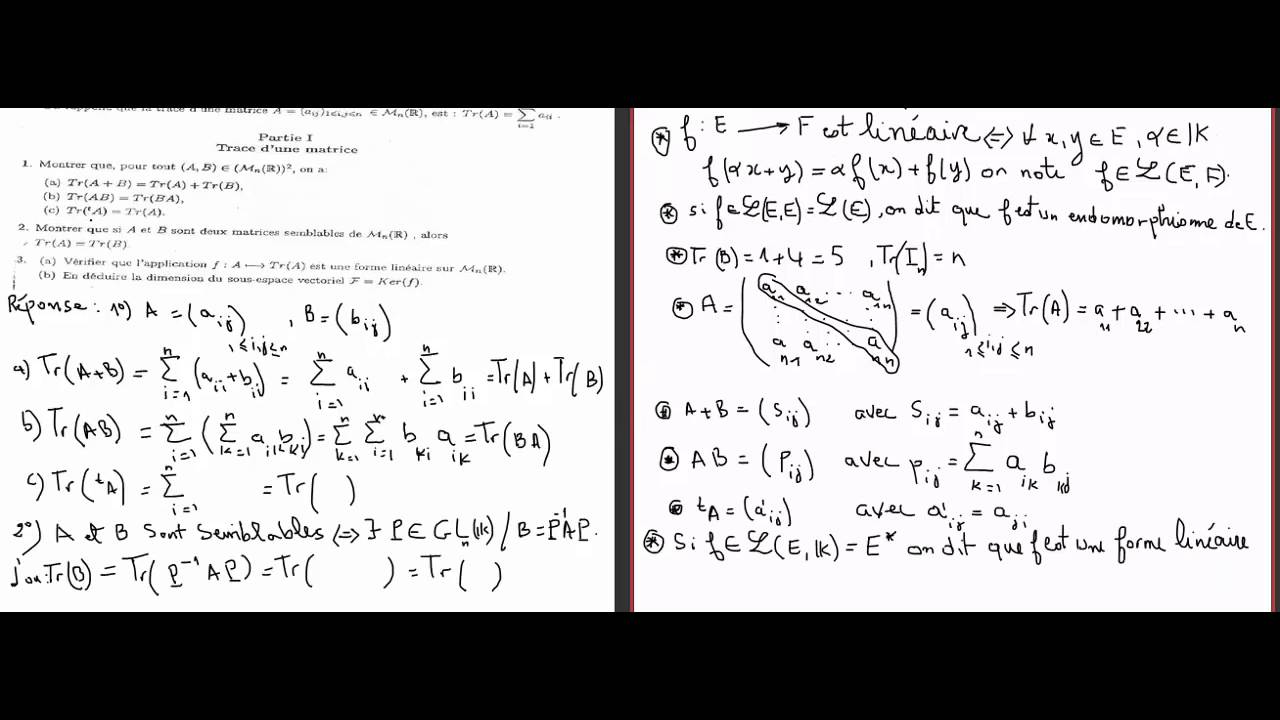 On rappelle que la trace d'une matrice A = (aij)1≤i,j≤n ∈ Mn(ℝ), est : Tr(A) = ∑_{i=1}^{n} aii .
Partie I
Trace d'une matrice
1. Montrer que, pour tout (A, B) ∈ (Mn(ℝ))², on a:
(a) Tr(A + B) = Tr(A) + Tr(B),
(b) Tr(AB) = Tr(BA),
(c) Tr(ᵗA) = Tr(A).
2. Montrer que si A et B sont deux matrices semblables de Mn(ℝ) , alors
Tr(A) = Tr(B).
3. (a) Vérifier que l'application f : A ⟼ Tr(A) est une forme linéaire sur Mn(ℝ).
(b) En déduire la dimension du sous-espace vectoriel F = Ker(f).
Réponse : 1°) A = (aij)1≤i,j≤n , B = (bij)
a) Tr(A+B) = ∑_{i=1}^{n} (aii + bii) = ∑_{i=1}^{n} aii + ∑_{i=1}^{n} bii = Tr(A) + Tr(B)
b) Tr(AB) = ∑_{i=1}^{n} (∑_{k=1}^{n} aik bki) = ∑_{k=1}^{n} ∑_{i=1}^{n} bki aik = Tr(BA)
c) Tr(ᵗA) = ∑_{i=1}^{n} = Tr( )
2°) A et B sont semblables <=> ∃ P ∈ GLn(IK) / B = P⁻¹AP.
d'où : Tr(B) = Tr(P⁻¹AP) = Tr( ) = Tr( )
* f : E ⟶ F est linéaire <=> ∀ x, y ∈ E, α ∈ IK
f(αx+y) = αf(x) + f(y) on note f ∈ ℒ(E, F).
* si f ∈ ℒ(E,E) = ℒ(E), on dit que f est un endomorphisme de E.
* Tr(B) = 1+4 = 5 , Tr(In) = n
* A = ( a11 a12 ... a1n
. . . .
an1 an2 ann ) = (aij)1≤i,j≤n => Tr(A) = a11 + a22 + ... + an
* A+B = (Sij) avec Sij = aij + bij
* AB = (Pij) avec pij = ∑_{k=1}^{n} aik bkj
* ᵗA = (a'ij) avec a'ij = aji
* Si f ∈ ℒ(E, IK) = E* on dit que f est une forme linéaire